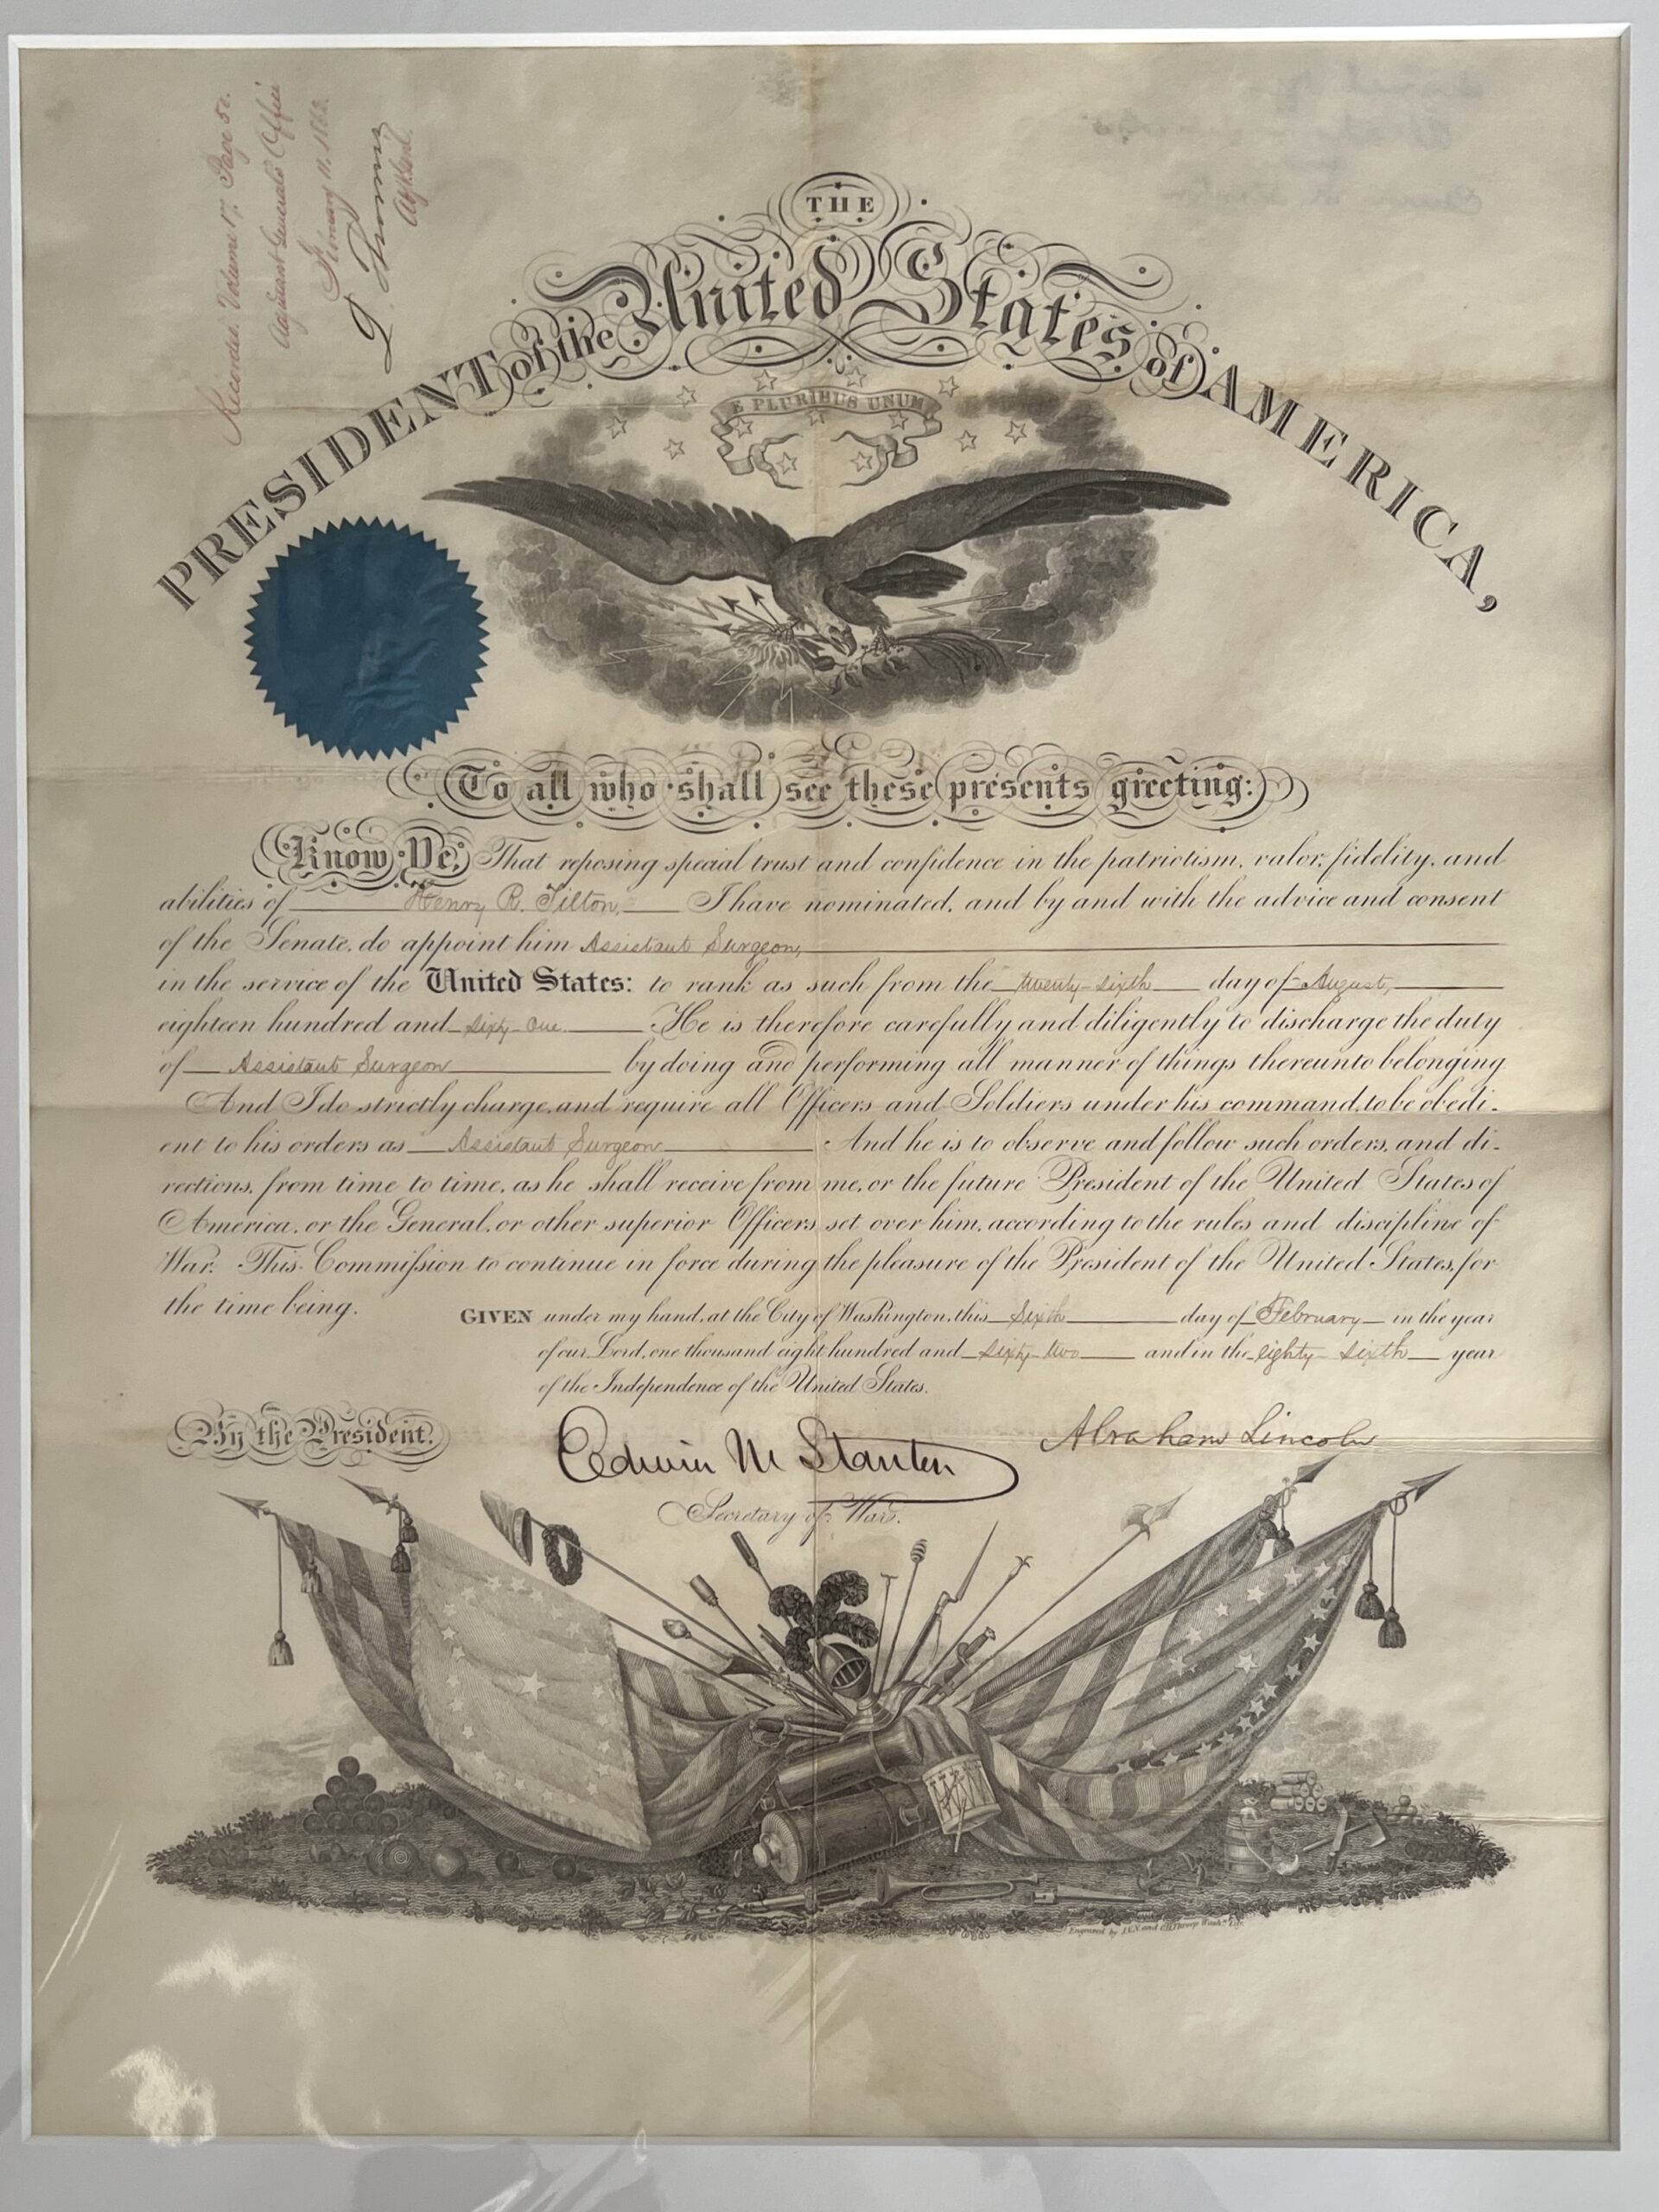 Recorded Volume 17. Page 50.
Adjutant General's Office
February 11. 1862.
L. Thomas
Adjt Genl.
THE
PRESIDENT of the United States of AMERICA,
E PLURIBUS UNUM
To all who shall see these presents greeting:
Know Ye, That reposing special trust and confidence in the patriotism, valor, fidelity, and
abilities of Henry R. Tilton, I have nominated, and by and with the advice and consent
of the Senate, do appoint him Assistant Surgeon,
in the service of the United States: to rank as such from the twenty-sixth day of August,
eighteen hundred and sixty-one. He is therefore carefully and diligently to discharge the duty
of Assistant Surgeon by doing and performing all manner of things thereunto belonging.
And I do strictly charge, and require all Officers and Soldiers under his command, to be obedi-
ent to his orders as Assistant Surgeon. And he is to observe and follow such orders, and di-
rections, from time to time, as he shall receive from me, or the future President of the United States of
America, or the General, or other superior Officers set over him, according to the rules and discipline of
War. This Commission to continue in force during the pleasure of the President of the United States, for
the time being.
GIVEN under my hand, at the City of Washington, this Sixth day of February in the year
of our Lord, one thousand eight hundred and sixty-two and in the eighty-sixth year
of the Independence of the United States.
By the President.
Edwin M Stanton
Abraham Lincoln
Secretary of War.
Engraved by J.V.N. and O.H. Throop Washn.